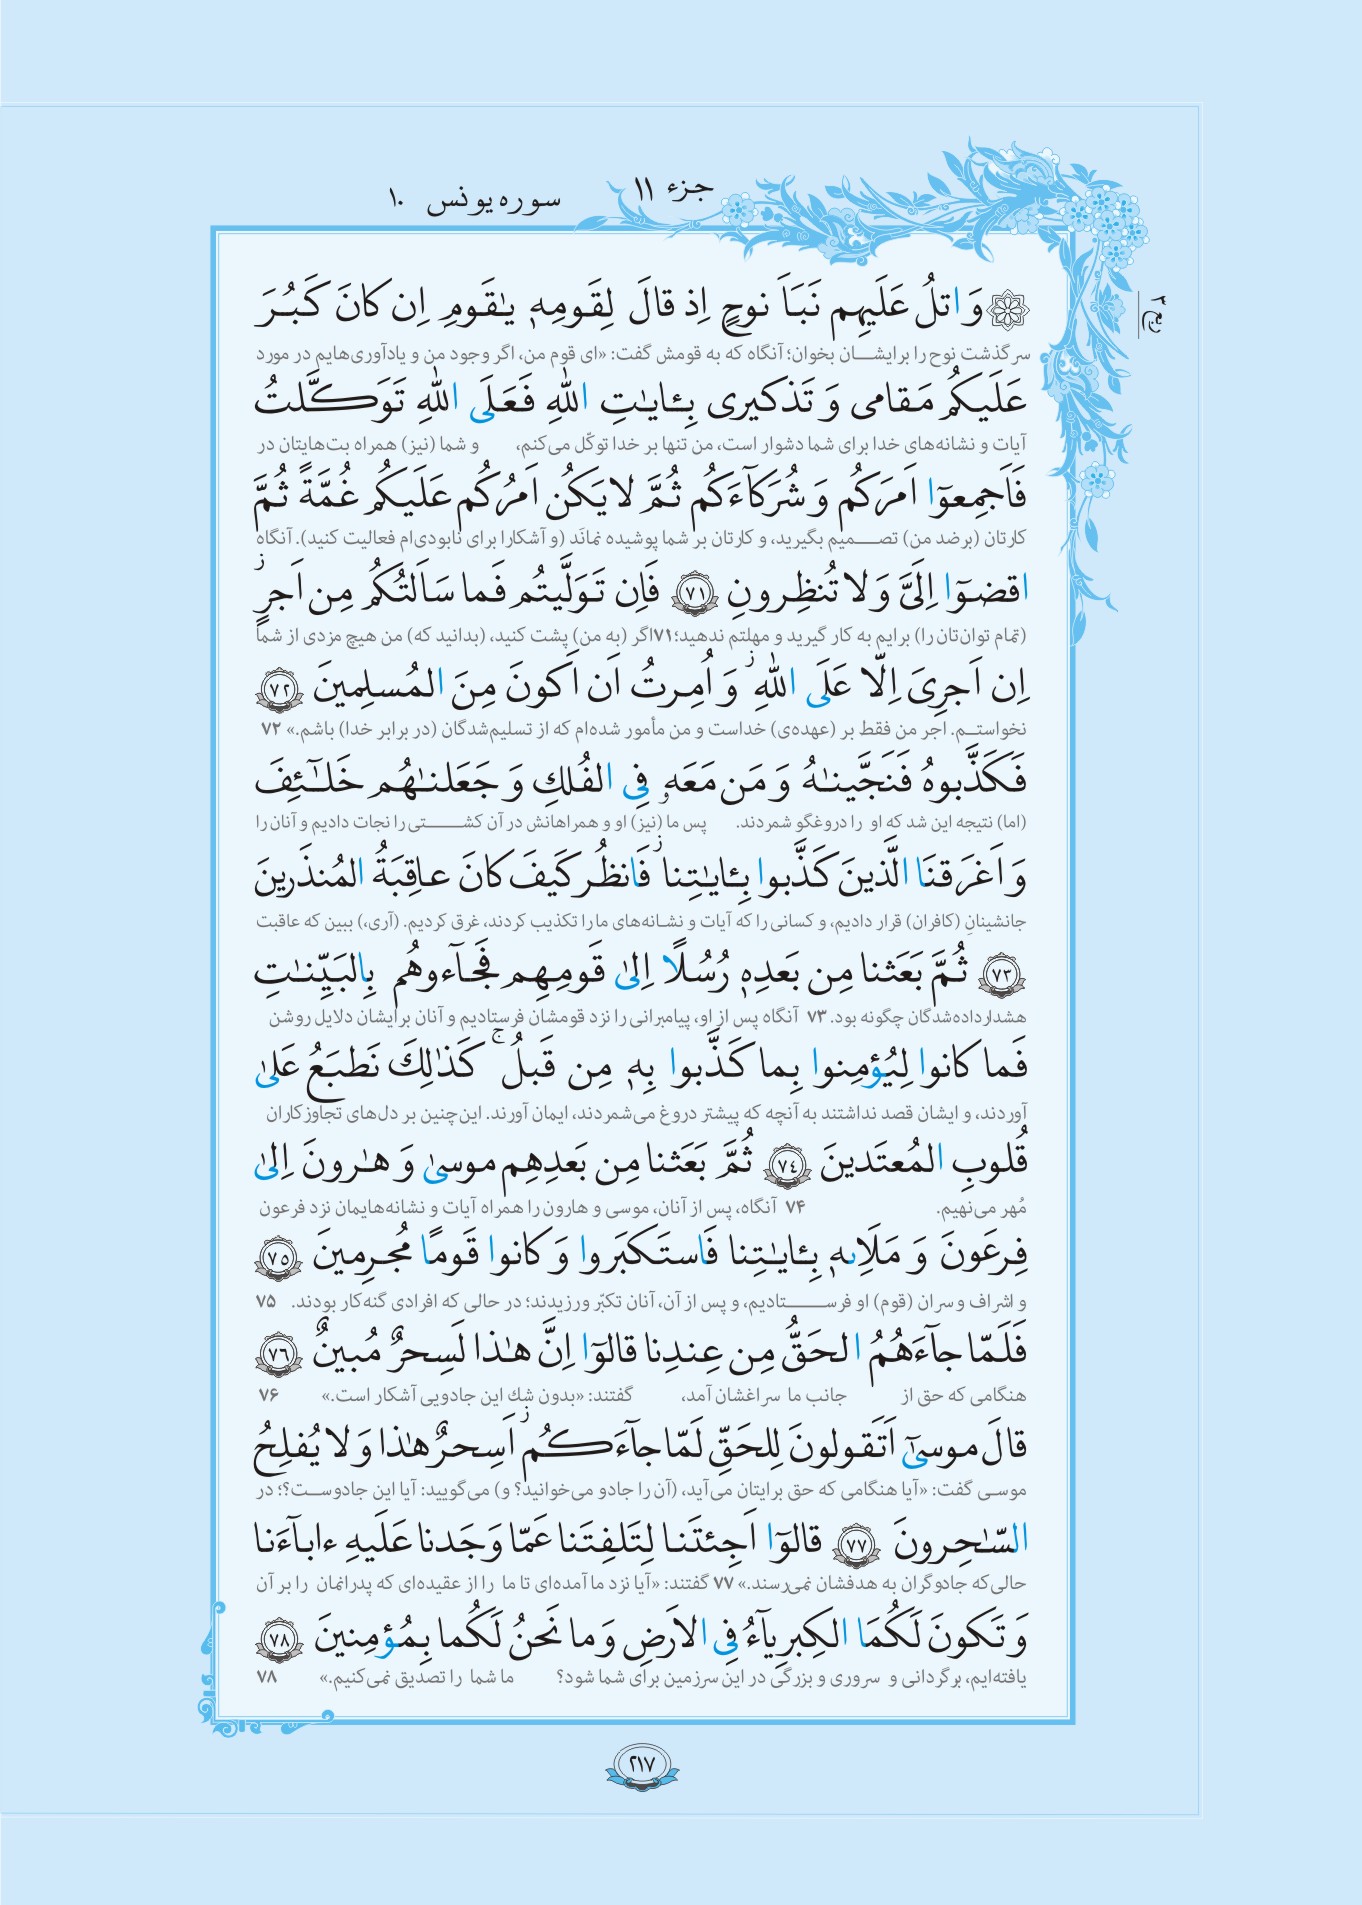 جزء ۱۱
سوره یونس ۱۰
ربع ۳
وَ اتلُ عَلَیهِم نَبَاَ نوحٍ اِذ قالَ لِقَومِهٖ یٰقَومِ اِن کانَ کَبُرَ
سرگذشت نوح را برایشان بخوان؛ آنگاه که به قومش گفت: «ای قوم من، اگر وجود من و یادآوری‌هایم در مورد
عَلَیکُم مَقامی وَ تَذکیری بِـٔایٰتِ اللّٰهِ فَعَلَی اللّٰهِ تَوَکَّلتُ
آیات و نشانه‌های خدا برای شما دشوار است، من تنها بر خدا توکّل می‌کنم، و شما (نیز) همراه بت‌هایتان در
فَاَجمِعوٓا اَمرَکُم وَ شُرَکآءَکُم ثُمَّ لا یَکُن اَمرُکُم عَلَیکُم غُمَّةً ثُمَّ
کارتان (برضد من) تصمیم بگیرید، و کارتان بر شما پوشیده نمانَد (و آشکارا برای نابودی‌ام فعالیت کنید). آنگاه
اقضوٓا اِلَیَّ وَ لا تُنظِرونِ ﴿۷۱﴾ فَاِن تَوَلَّیتُم فَما سَاَلتُکُم مِن اَجرٍ ۖ
(تمام توان‌تان را) برایم به کار گیرید و مهلتم ندهید؛ ۷۱ اگر (به من) پشت کنید، (بدانید که) من هیچ مزدی از شما
اِن اَجرِیَ اِلّا عَلَی اللّٰهِ ۖ وَ اُمِرتُ اَن اَکونَ مِنَ المُسلِمینَ ﴿۷۲﴾
نخواستم. اجر من فقط بر (عهده‌ی) خداست و من مأمور شده‌ام که از تسلیم‌شدگان (در برابر خدا) باشم.» ۷۲
فَکَذَّبوهُ فَنَجَّینٰهُ وَ مَن مَعَهٗ فِی الفُلکِ وَ جَعَلنٰهُم خَلٰٓئِفَ
(اما) نتیجه این شد که او را دروغگو شمردند. پس ما (نیز) او و همراهانش در آن کشتی را نجات دادیم و آنان را
وَ اَغرَقنَا الَّذینَ کَذَّبوا بِـٔایٰتِنا ۖ فَانظُر کَیفَ کانَ عاقِبَةُ المُنذَرینَ
جانشینانِ (کافران) قرار دادیم، و کسانی را که آیات و نشانه‌های ما را تکذیب کردند، غرق کردیم. (آری،) ببین که عاقبت
﴿۷۳﴾ ثُمَّ بَعَثنا مِن بَعدِهٖ رُسُلًا اِلیٰ قَومِهِم فَجآءوهُم بِالبَیِّنٰتِ
هشدارداده‌شدگان چگونه بود. ۷۳ آنگاه پس از او، پیامبرانی را نزد قومشان فرستادیم و آنان برایشان دلایل روشن
فَما کانوا لِیُؤمِنوا بِما کَذَّبوا بِهٖ مِن قَبلُ ۚ کَذٰلِكَ نَطبَعُ عَلیٰ
آوردند، و ایشان قصد نداشتند به آنچه که پیشتر دروغ می‌شمردند، ایمان آورند. این‌چنین بر دل‌های تجاوزکاران
قُلوبِ المُعتَدینَ ﴿۷۴﴾ ثُمَّ بَعَثنا مِن بَعدِهِم موسیٰ وَ هٰرونَ اِلیٰ
مُهر می‌نهیم. ۷۴ آنگاه، پس از آنان، موسی و هارون را همراه آیات و نشانه‌هایمان نزد فرعون
فِرعَونَ وَ مَلَاِی۟هٖ بِـٔایٰتِنا فَاستَکبَروا وَ کانوا قَومًا مُجرِمینَ ﴿۷۵﴾
و اشراف و سران (قوم) او فرستادیم، و پس از آن، آنان تکبّر ورزیدند؛ در حالی که افرادی گنه‌کار بودند. ۷۵
فَلَمّا جآءَهُمُ الحَقُّ مِن عِندِنا قالوٓا اِنَّ هٰذا لَسِحرٌ مُبینٌ ﴿۷۶﴾
هنگامی که حق از جانب ما سراغشان آمد، گفتند: «بدون شك این جادویی آشکار است.» ۷۶
قالَ موسیٰٓ اَتَقولونَ لِلحَقِّ لَمّا جآءَکُم ۖ اَسِحرٌ هٰذا وَ لا یُفلِحُ
موسی گفت: «آیا هنگامی که حق برایتان می‌آید، (آن را جادو می‌خوانید؟ و) می‌گویید: آیا این جادوست؟؛ در
السّٰحِرونَ ﴿۷۷﴾ قالوٓا اَجِئتَنا لِتَلفِتَنا عَمّا وَجَدنا عَلَیهِ ءابآءَنا
حالی‌که جادوگران به هدفشان نمی‌رسند.» ۷۷ گفتند: «آیا نزد ما آمده‌ای تا ما را از عقیده‌ای که پدرانمان را بر آن
وَ تَکونَ لَکُمَا الکِبرِیآءُ فِی الاَرضِ وَ ما نَحنُ لَکُما بِمُؤمِنینَ ﴿۷۸﴾
یافته‌ایم، برگردانی و سروری و بزرگی در این سرزمین برای شما شود؟ ما شما را تصدیق نمی‌کنیم.» ۷۸
۲۱۷